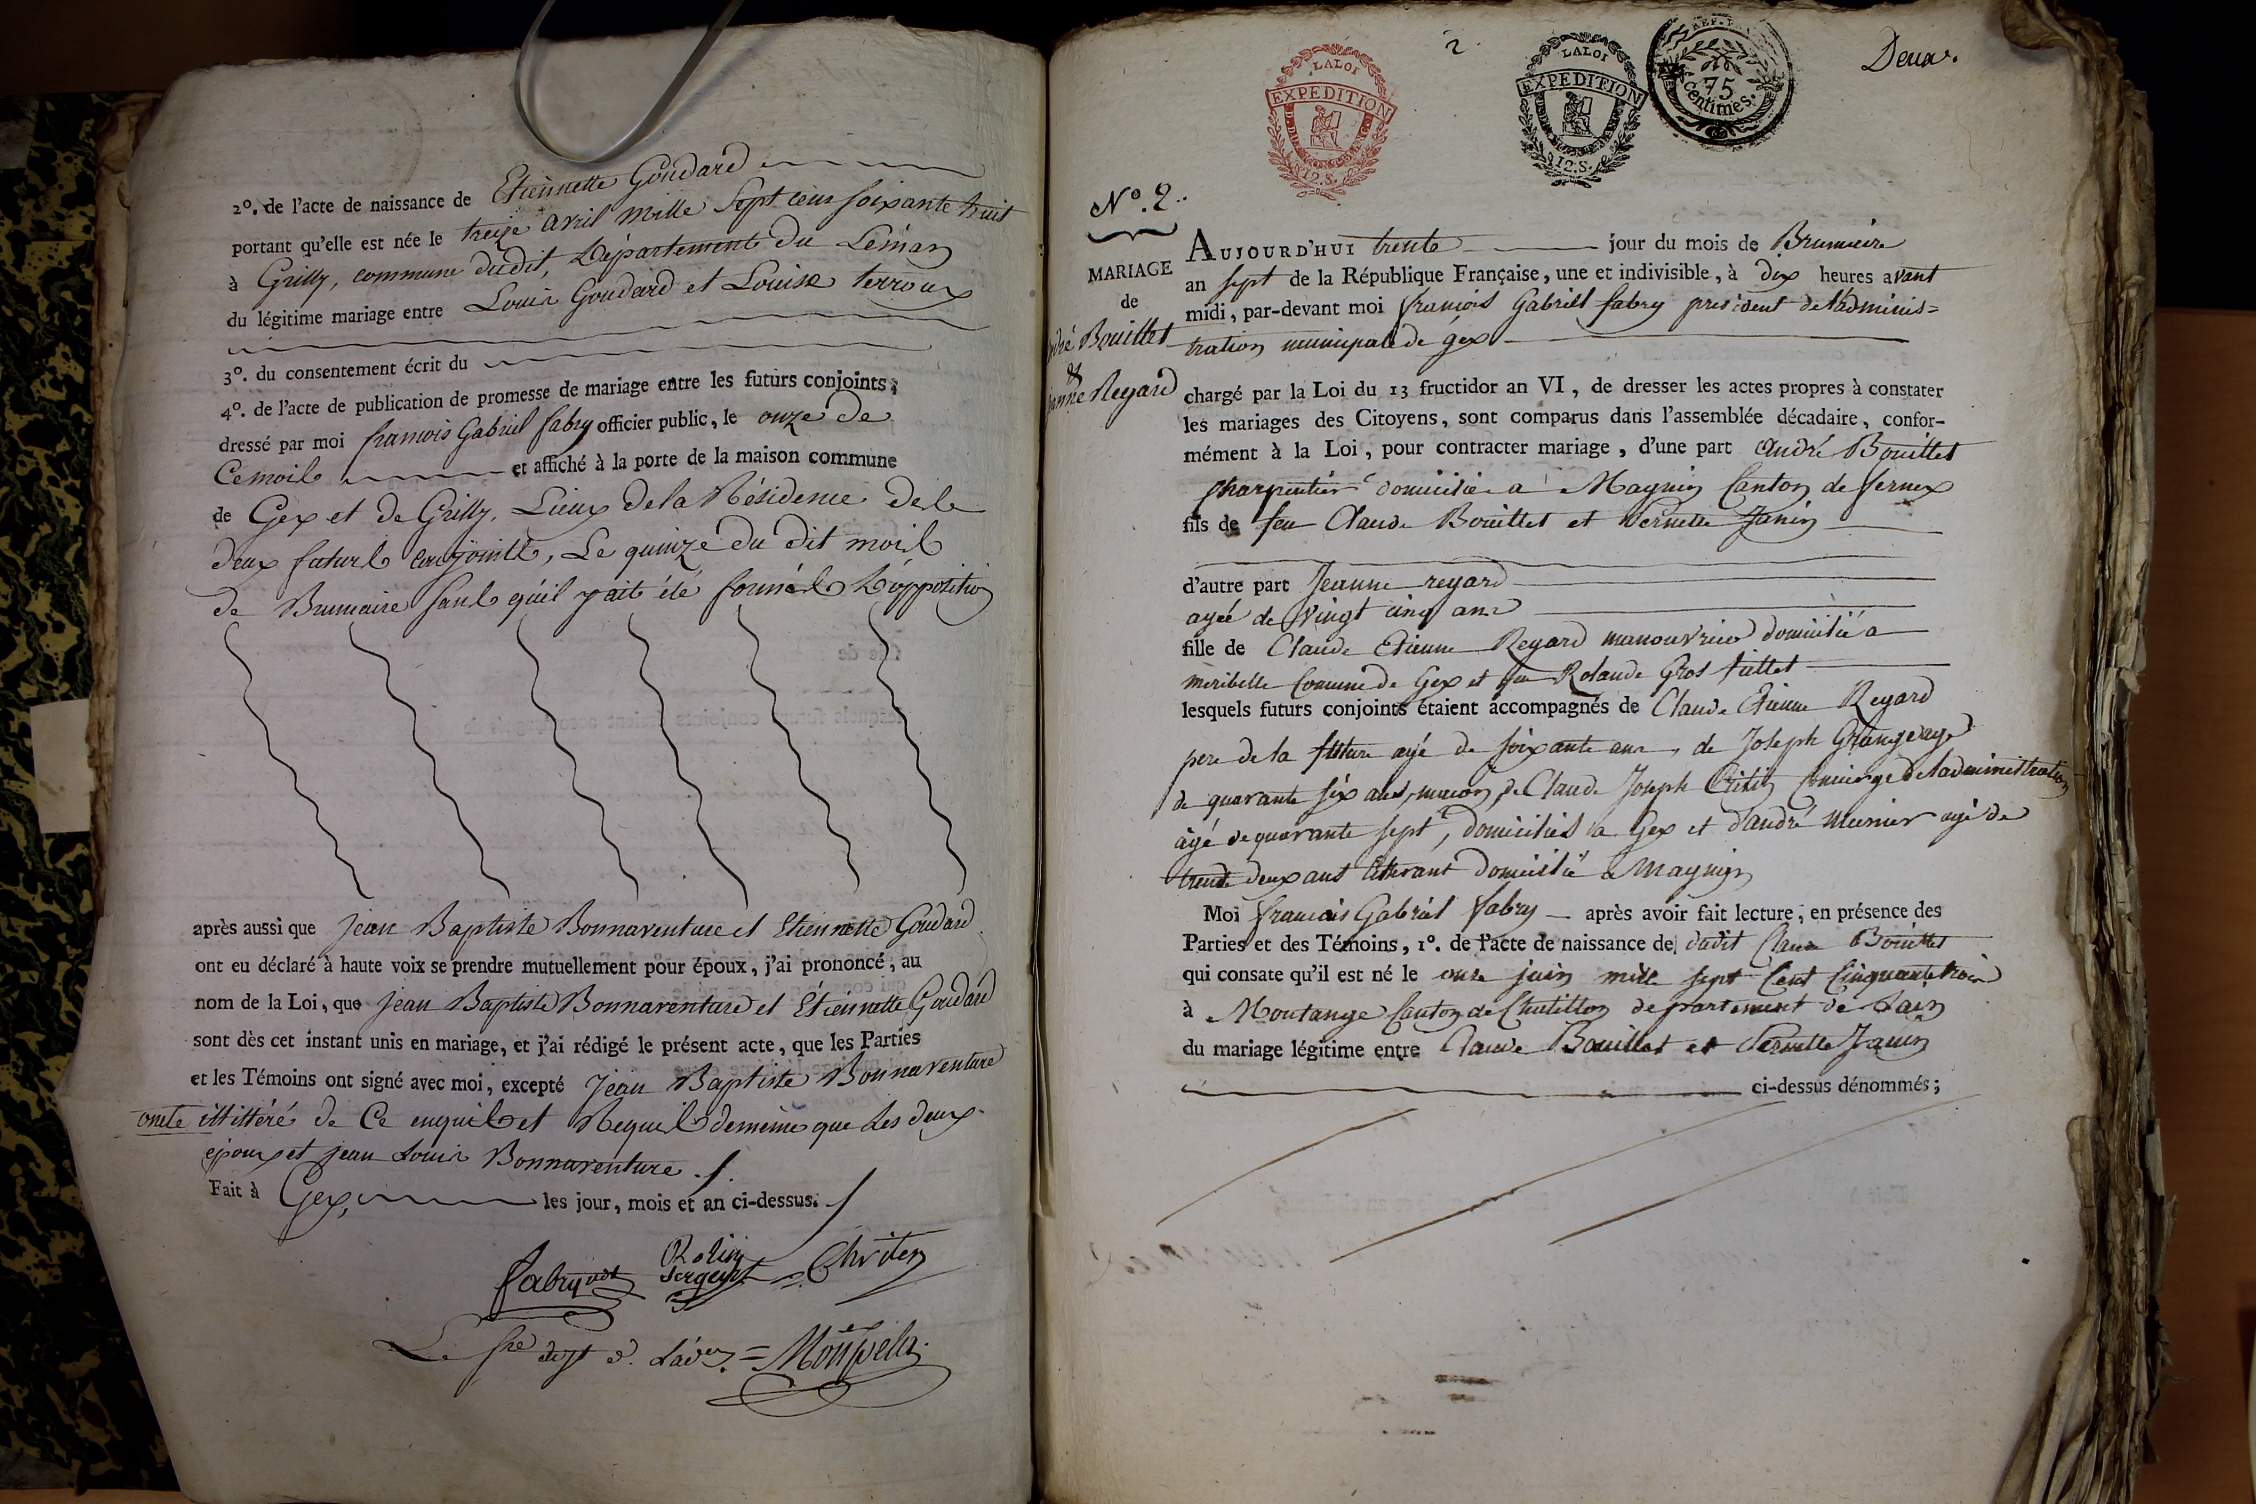 2º. de l'acte de naissance de Etiennette Goudard
portant qu'elle est née le treize avril mille sept cens soixante huit
à Grilly, commune dudit, Département du Léman
du légitime mariage entre Louis Goudard et Louise terroux
3º. du consentement écrit du
4º. de l'acte de publication de promesse de mariage entre les futurs conjoints;
dressé par moi francois Gabriel fabry officier public, le onze de
Ce mois et affiché à la porte de la maison commune
de Gex et de Grilly, Lieux de la Résidence de
deux futurs conjoints, Le quinze du dit mois
de Brumaire sans qu'il y ait été formés d'opposition
après aussi que jean Baptiste Bonnaventure et Etiennette Goudard
ont eu déclaré à haute voix se prendre mutuellement pour époux, j'ai prononcé, au
nom de la Loi, que jean Baptiste Bonnaventure et Etiennette Goudard
sont dès cet instant unis en mariage, et j'ai rédigé le présent acte, que les Parties
et les Témoins ont signé avec moi, excepté Jean Baptiste Bonnaventure
oncle illittéré de Ce enquis et Requis de même que Les deux
époux et jean Louis Bonnaventure ./.
Fait à Gex, les jour, mois et an ci-dessus.
fabry
Rolin
sergent
Chriten
2
LA LOI
EXPEDITION
12.S.
LA LOI
EXPEDITION
12.S.
75
Centimes.
Deux.
Nº. 2.
MARIAGE
de
dré Bouillet
&
anne Regard
AUJOURD'HUI trente jour du mois de Brumaire
an sept de la République Française, une et indivisible, à dix heures avant
midi, par-devant moi françois Gabriel fabry president de l'adminis=
tration municipale de gex
chargé par la Loi du 13 fructidor an VI, de dresser les actes propres à constater
les mariages des Citoyens, sont comparus dans l'assemblée décadaire, confor-
mément à la Loi, pour contracter mariage, d'une part André Bouillet
charpentier domicilié a Magnin Canton de fernex
fils de feu Claude Bouillet et Pernette Janin
d'autre part Jeanne regard
agée de vingt cinq ans
fille de Claude Etienne Regard manouvrier domicilié a
miribelle Comune de Gex et feu Rolande Gros fillet
lesquels futurs conjoints étaient accompagnés de Claude Etienne Regard
pere de la future agé de soixante ans, de Joseph Grange agé
de quarante six ans, macon, de Claude Joseph concierge de l'administration
agé de quarante sept, domiciliés a Gex et d'andré meunier agé de
trente deux ans domicilié a Magnin
Moi françois Gabriel fabry après avoir fait lecture, en présence des
Parties et des Témoins, 1º. de l'acte de naissance de dudit Claude Bouillet
qui consate qu'il est né le onze juin mille sept Cent Cinquante trois
à Montange Canton de Chatillon departement de Lain
du mariage légitime entre Claude Bouillet et Pernette Janin
ci-dessus dénommés;